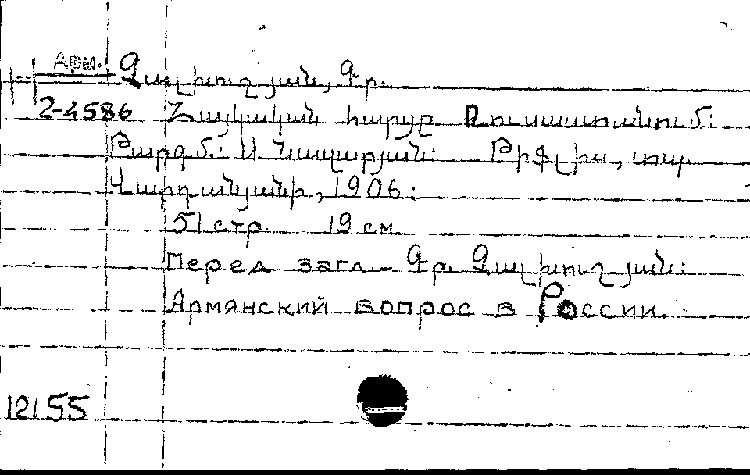 Арм. Չալխուշյան, Գր.
2-4586 Հայկական հարցը Ռուսաստանում:
Թարգմ.: Ա. Նազարյան: Թիֆլիս, տպ.
Վարդանյանի, 1906:
51 стр. 19 см.
Перед загл. Գր. Չալխուշյան:
Армянский вопрос в России.
12155